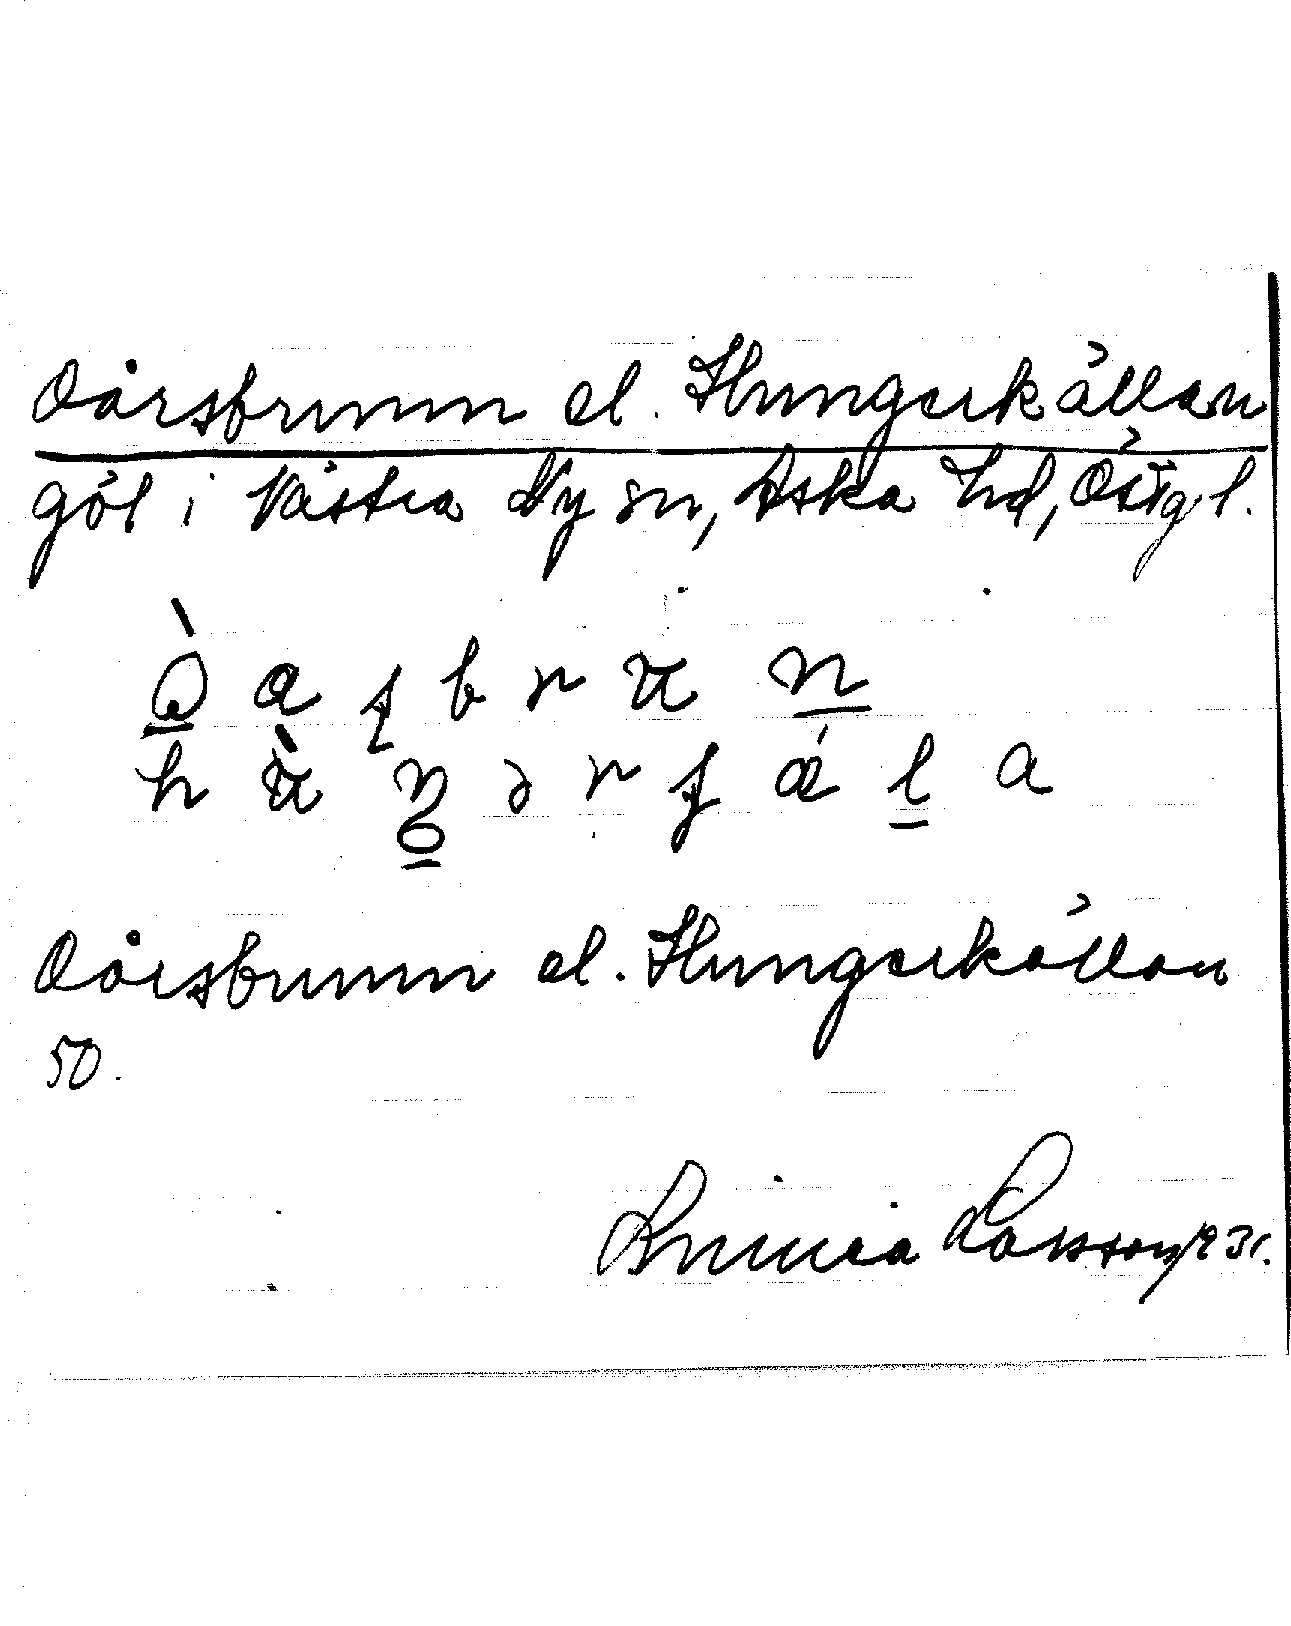 Oårsbrunn el. Hungerkällan
göl i Västra Ny sn, Aska hd, Östg. l.
Oårsbrunn el. Hungerkällan
50.
Linnea Larsson 1931.